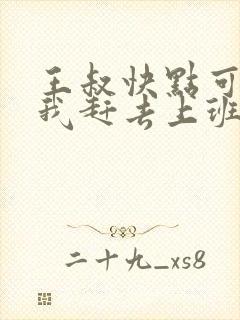 王叔快點可
我赶去上班
二十九_xs8